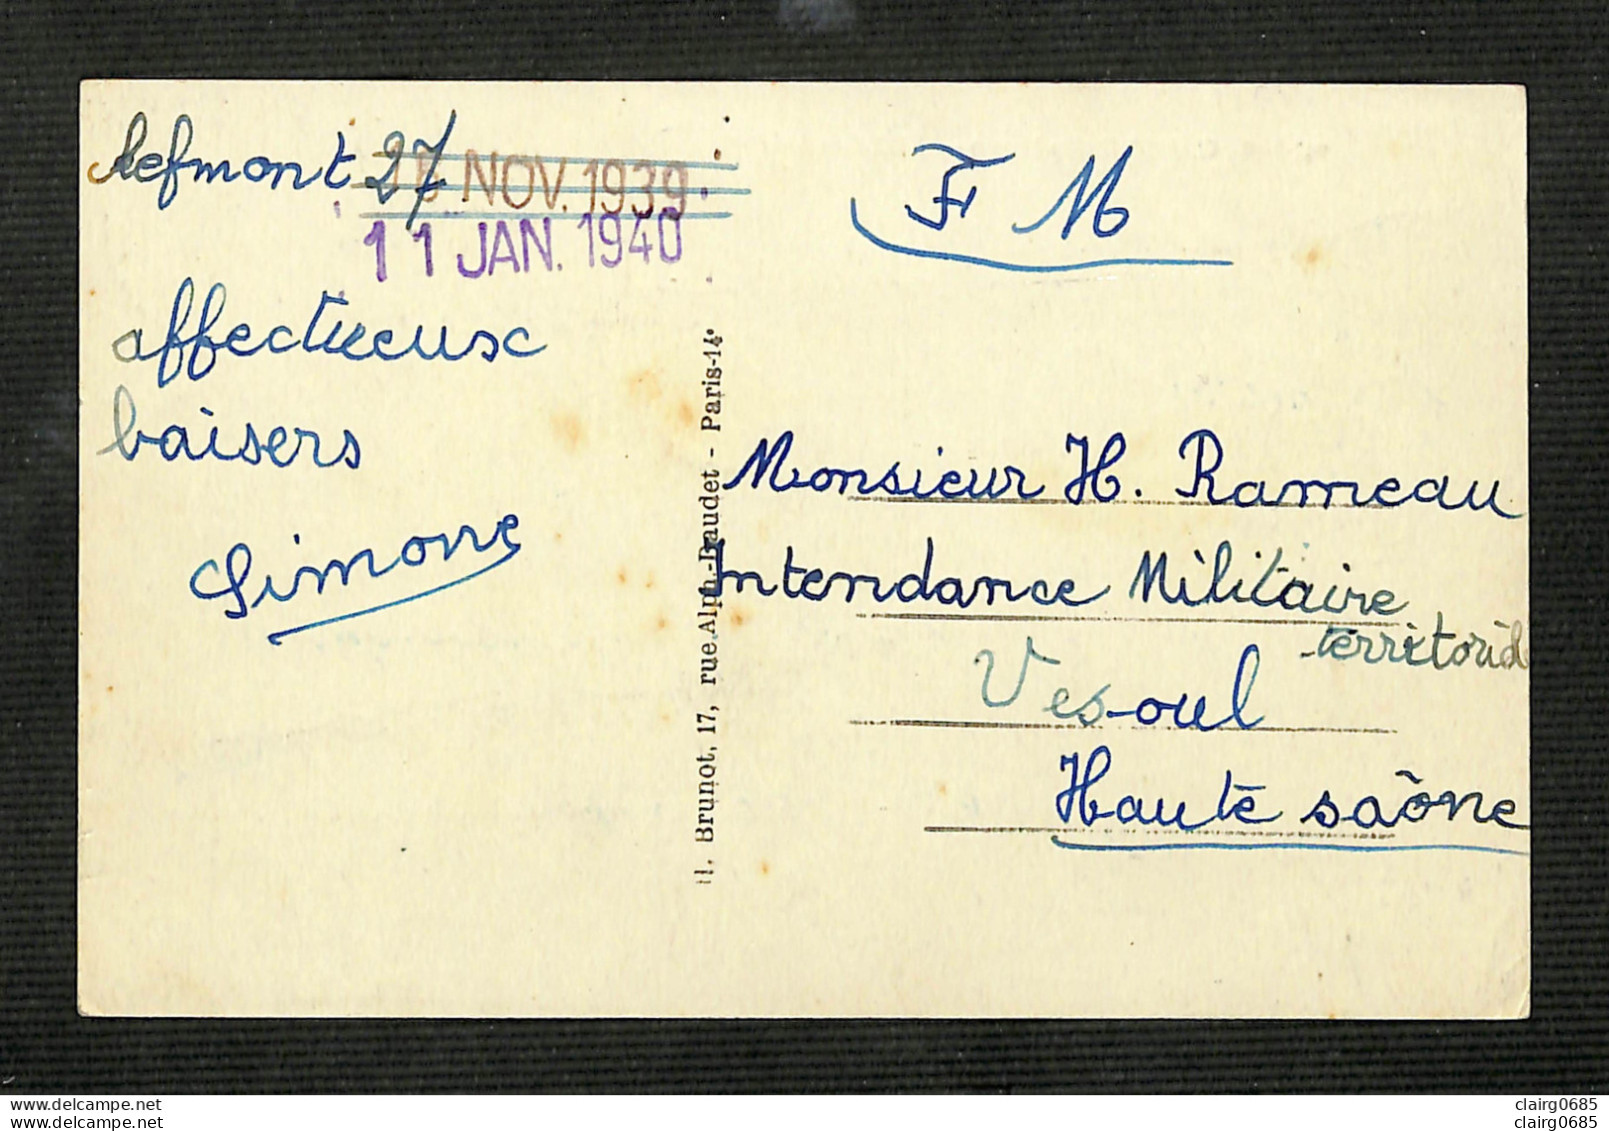 Clefmont 27 NOV. 1939
11 JAN. 1940
affectueuse
baisers
Simone
H. Brunot, 17, rue Alph.-Daudet - Paris-14e
F M
Monsieur H. Rameau
Intendance Militaire
territorial
Vesoul
Haute saône
www.delcampe.net
clairg0685
clairg0685